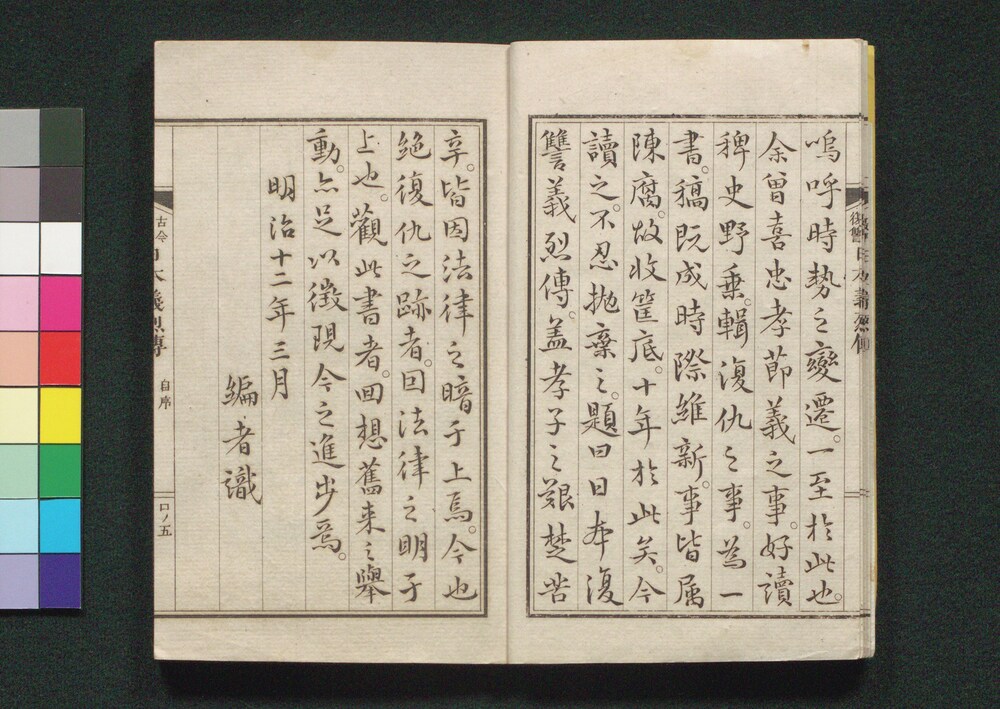 嗚呼時勢之變遷。一至於此也。
余曾喜忠孝節義之事。好讀
稗史野乗。輯復仇之事。為一
書。稿既成時際維新。事皆属
陳腐。故收筐底。十年於此矣。今
讀之。不忍抛棄之。題曰日本復
讐義烈傳。蓋孝子之艱楚苦
辛。皆因法律之暗于上焉。今也
絶復仇之跡者。因法律之明于
上也。觀此書者。回想舊来之舉
動。亦足以徴現今之進歩焉。
明治十二年三月
編者識
古今
日本義烈傳
自序
口ノ五